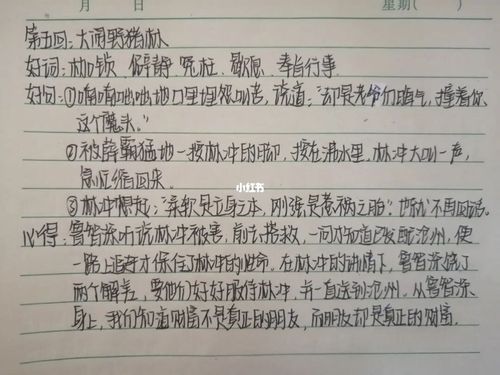 月 日 星期( )
第五回:大闹野猪林
好词:枷锁 僻静 冤枉 歇息 奉旨行事
好句:①喃喃呐呐地口里埋怨叫苦,说道:“却是老爷们晦气,撞着你
这个魔头。”
②被薛霸猛地一按林冲的脚,按在沸水里。林冲大叫一声,
急忙缩回来。
③林冲想起:“柔软是立身之本,刚强是惹祸之胎”也就不再回话。
心得:鲁智深听说林冲被害,前去搭救,一问才知道已发配沧州,便
一路上追寻才保住了林冲的性命。在林冲的讲情下,鲁智深饶了
两个解差,要他们好好服侍林冲,并一直送到沧州。从鲁智深
身上,我们知道财富不是真正的朋友,而朋友却是真正的财富。
小红书